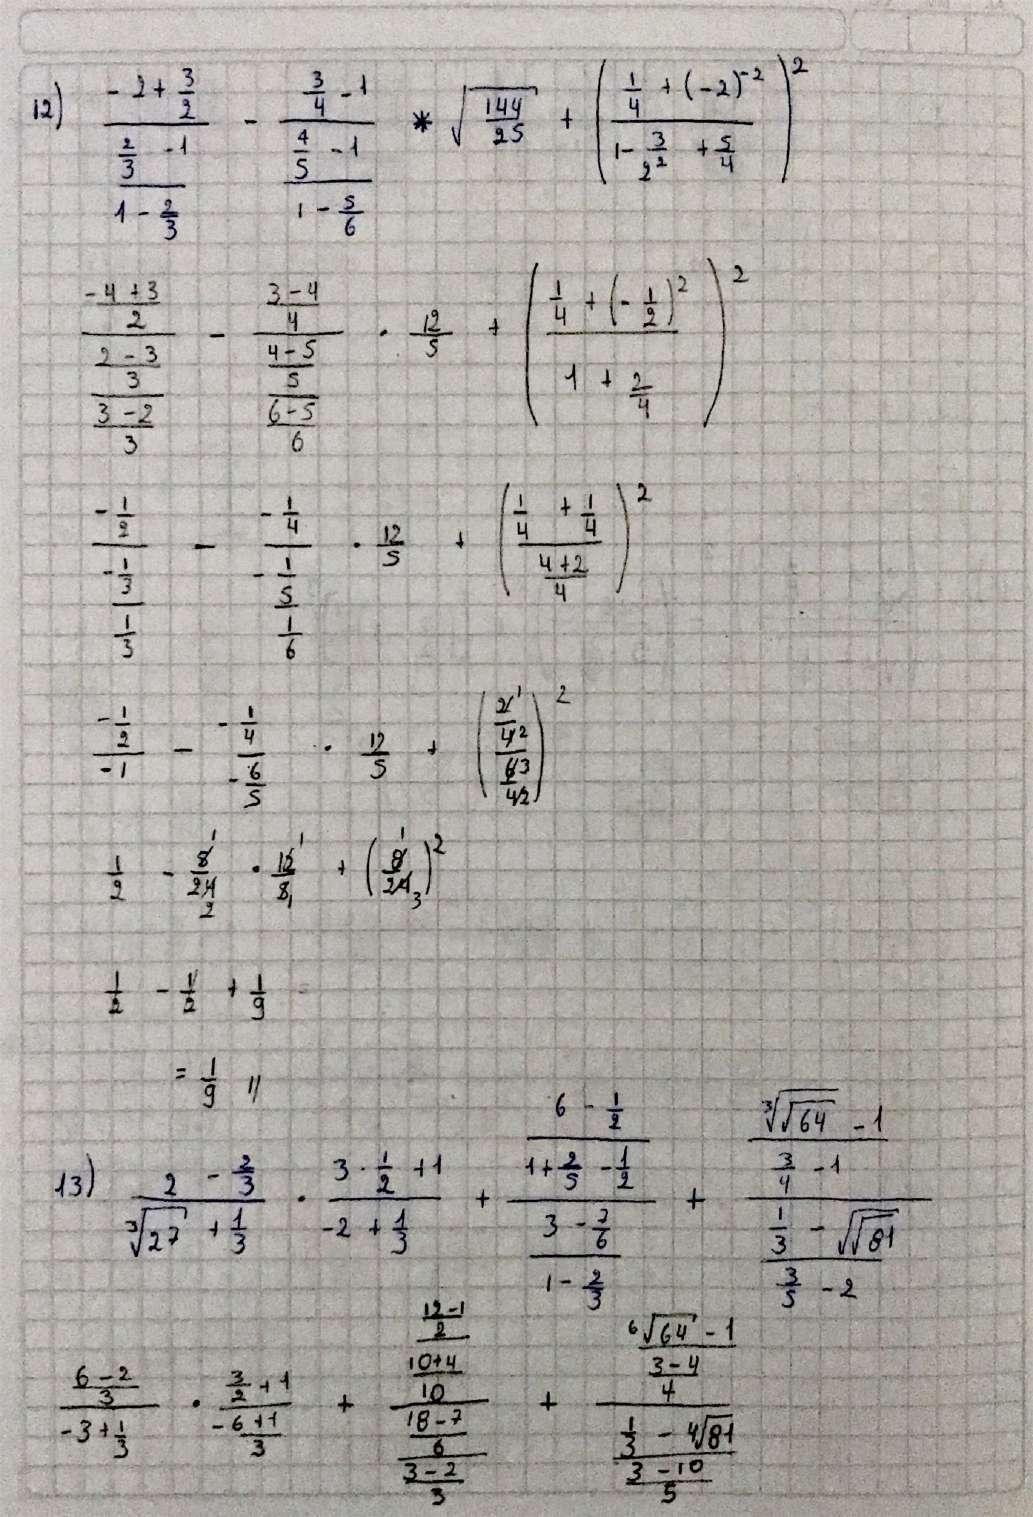 12) (-2 + 3/2)/((2/3 - 1)/(1 - 2/3)) - (3/4 - 1)/((4/5 - 1)/(1 - 5/6)) * √(144/25) + ((1/4 + (-2)^-2)/(1 - 3/2² + 5/4))²
((-4+3)/2)/(((2-3)/3)/((3-2)/3)) - ((3-4)/4)/(((4-5)/5)/((6-5)/6)) · 12/5 + ((1/4 + (-1/2)²)/(1 + 2/4))²
(-1/2)/((-1/3)/(1/3)) - (-1/4)/((-1/5)/(1/6)) · 12/5 + ((1/4 + 1/4)/((4+2)/4))²
(-1/2)/(-1) - (-1/4)/(-6/5) · 12/5 + ((2/4)/(6/4))²
1/2 - 1/2 + 1/9
= 1/9 //
13) (2 - 2/3)/(∛27 + 1/3) · (3 · 1/2 + 1)/(-2 + 1/3) + ((6 - 1/2)/(1 + 2/5 - 1/2))/((3 - 7/6)/(1 - 2/3)) + ((∛√64 - 1)/(3/4 - 1))/((1/3 - √√81)/(3/5 - 2))
((6-2)/3)/(-3 + 1/3) · (3/2 + 1)/((-6+1)/3) + (((12-1)/2)/((10+4)/10))/(((18-7)/6)/((3-2)/3)) + ((⁶√64 - 1)/((3-4)/4))/((1/3 - ⁴√81)/((3-10)/5))